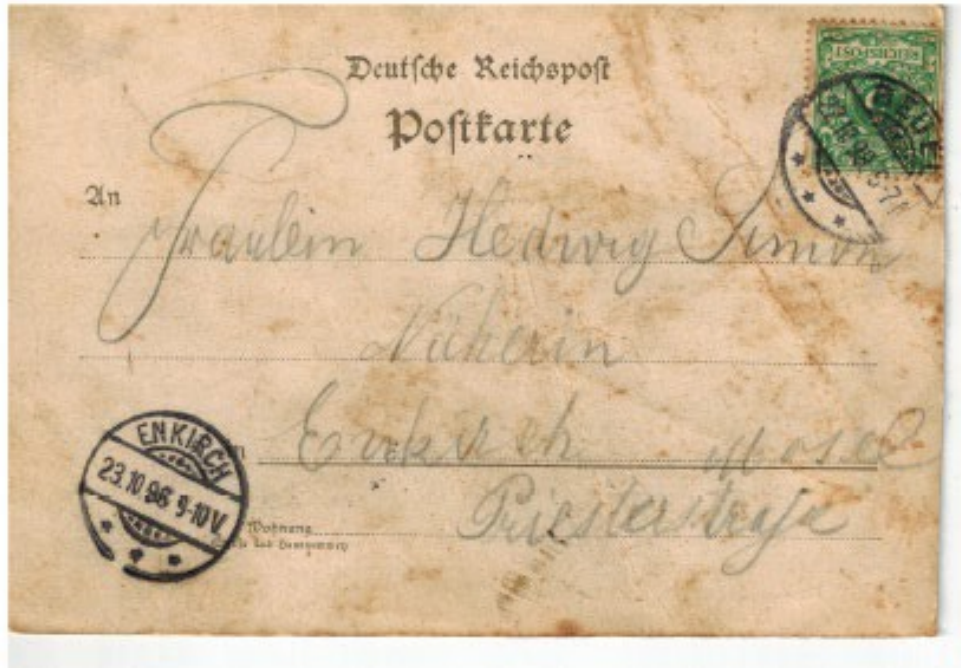 Deutsche Reichspost
Postkarte
REICHSPOST
BEUEL
An
Fräulein Hedwig Simon
Näherin
Enkirch Mosel
Priesterstraße
ENKIRCH
23.10.96 9-10V
Wohnung